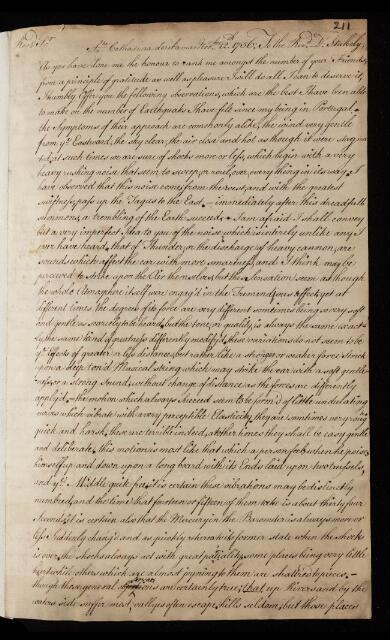 211
Revd. Sr.
Sta. Catharina de ribamar Novr. 22d. 1756, To the Revd. Dr. Stukeley
As you have done me the honour to rank me amongst the number of your Friends,
from a principle of gratitude as well as pleasure I will do all I can to deserve it,
I humbly offer you the following observations, which are the best I have been able
to make on the number of Earthquakes I have felt since my being in Portugal —
the Symptoms of their approach are commonly alike, the wind very gentle
from ye. Eastward, the sky clear, the air close and hot as though it were stagna
ted; at such times we are sure of shocks more or less, which begin with a very
heavy rushing noise that seem to sweep, or roll, over every thing in its way, I
have observed that this noise comes from the west and with the greatest
swiftness, pass up the Tagus to the East — immediately after this dreadfull
summons, a trembling of the Earth succeeds. I am afraid I shall convey
but a very imperfect Idea to you of the noise, which is intirely unlike any I
ever have heard, that of Thunder, or the discharge of heavy cannon, are
sounds which affect the ear with more smartness, and I think may be
perceived to strike upon the Air themselves, but this Sensation seem as though
the whole Atmosphere itself were engag'd in the Tremendous effort, yet at
different times the degrees of its force are very different sometimes being so very soft
and gentle as scarcely to be heard, but the tone, or quality, is always the same exact
ly the same kind of greatness differently modify'd, these variations do not seem to be
ye. Effects of greater or less distance, but rather like a stronger or weaker force struck
upon a deep ton'd Musical string which may strike the ear with a soft gentle
ness, or a strong Sound, without change of distance as the forces are differently
apply'd — the motion which always succeed seem to be form'd of little undulating
waves which vibrate with a very perceptible Elasticity, they are sometimes very
quick and harsh, these are terrible indeed, at other times they shall be easy gentle
and deliberate, this motion is most like that which a person feels when he poises
himself up and down upon a long board with its Ends laid upon two trussels,
and ye. Middle quite free; it is certain these vibrations may be distinctly
numbred, and the time that fourteen or fifteen of them take is about thirty four
Seconds, it is certain also that the Mercury in the Barometer is always more or
less suddenly chang'd and as quickly returns to its former state when the shock
is over, the shocks always act with great partiality, some places being very little
hurt whilst others which are almost joyning to them are shatter'd to pieces, —
though these general are certainly true; that up Rivers and by the
waters side suffer most, valleys often escape, hills seldom, but those places